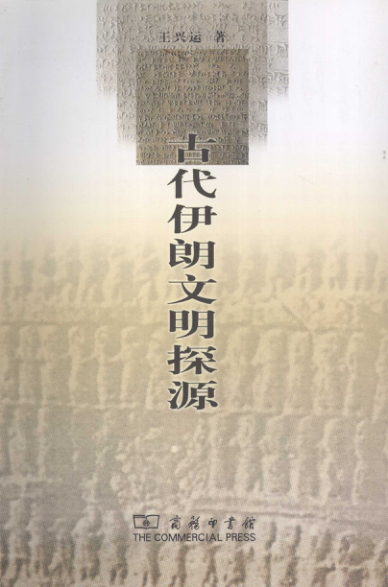 王兴运 著
古代伊朗文明探源
商務印書館
THE COMMERCIAL PRESS